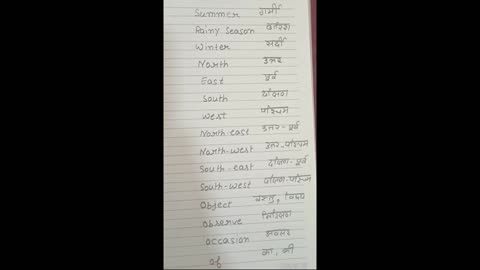 Summer गर्मी
Rainy Season बारिश
Winter सर्दी
North उत्तर
East पूर्व
South दक्षिण
West पश्चिम
North-east उत्तर-पूर्व
North-west उत्तर-पश्चिम
South-east दक्षिण-पूर्व
South-west दक्षिण-पश्चिम
Object वस्तु, विषय
Observe
Occasion अवसर
of का, की